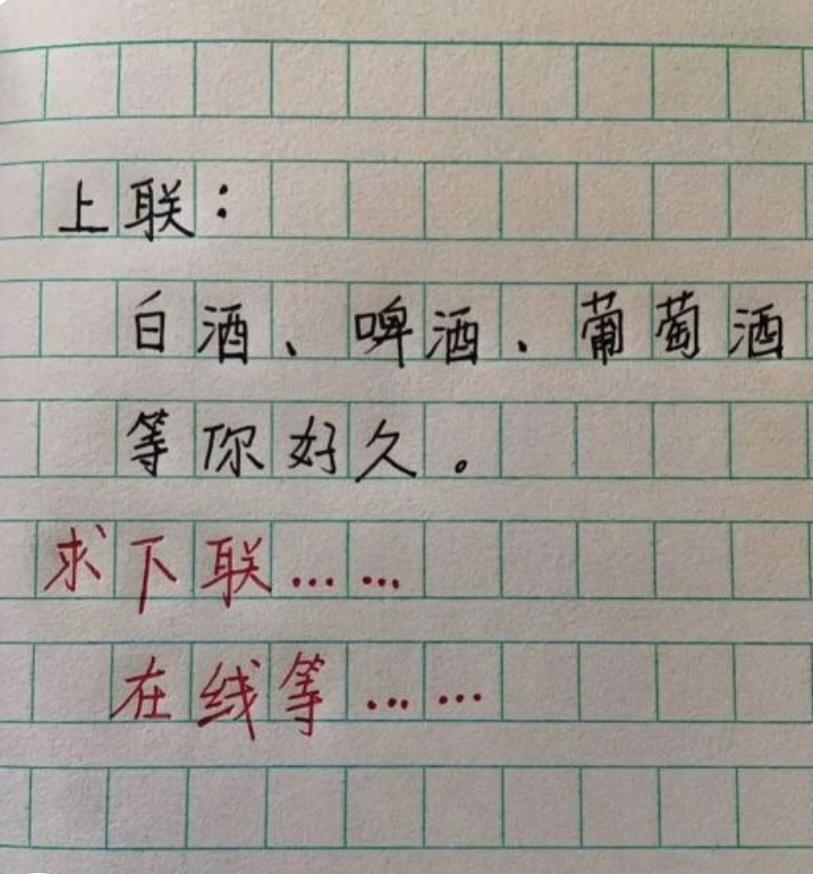 上联:
白酒、啤酒、葡萄酒
等你好久。
求下联……
在线等……